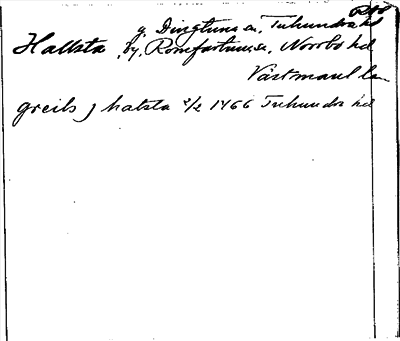 g. Dingtuna sn, Tuhundra hd
Hallsta by, Romfartuna sn, Norrbo hd
Västmanl la
greils j halsta 2/2 1466 Tuhundr hd